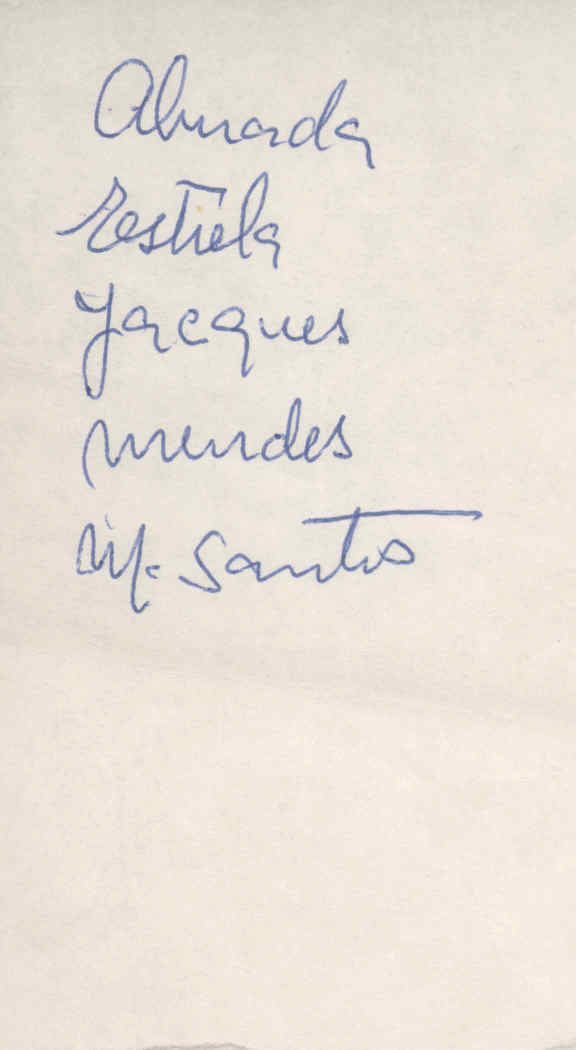 Almada
Estrela
Jacques
Mendes
M. Santos